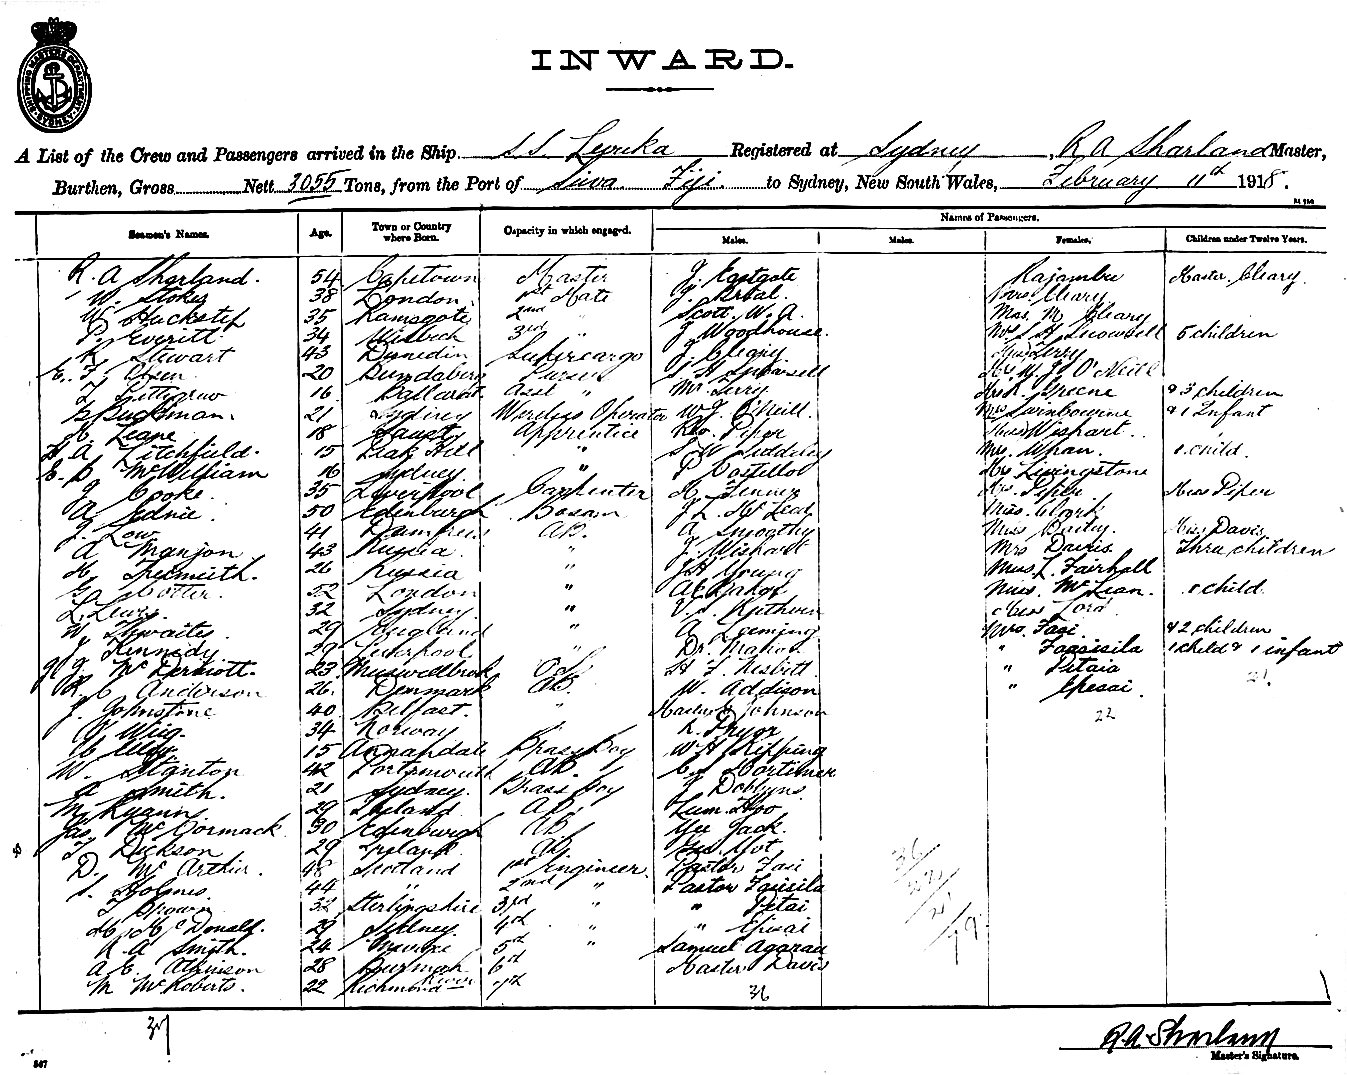 SHIPPING MASTER'S DEPARTMENT SYDNEY
INWARD.
A List of the Crew and Passengers arrived in the Ship S.S. Levuka Registered at Sydney, R A Sharland Master,
Burthen, Gross Nett 3055 Tons, from the Port of Suva Fiji to Sydney, New South Wales, February 11th 1918.
Names of Passengers.
Seamen's Names. Age. Town or Country where Born. Capacity in which engaged. Males. Males. Females. Children under Twelve Years.
R. A Sharland. 54 Capetown Master J. Eastgate Rajambu Master Cleary
W. Stokes 38 London 1st Mate J. Mrs. Cleary
W Huckstep 35 Ramsgate 2nd " Scott. W. A. Miss. M Cleary
P. Everitt 34 Wisbech 3rd " J Woodhouse. Mrs S H Snowsell 5 children
R Stewart 43 Dunedin Supercargo J. Cleary Terry
E. F. Olsen 20 Bundaberg Purser S H Snowsell Mrs W J O'Neill
T Pettigrew 16 Ballarat Asst " Mr Terry Mrs A. Greene & 3 children
Buchman. 21 Sydney Wireless Operator W J. O'Neill. Mrs Swinbourne & 1 Infant
H. Leane 18 Apprentice Rev. Piper Wishart.
H A. Litchfield. 15 Leak Hill " S W Mrs. Whan. 1 child.
E. D McWilliam 16 Sydney. " P Costelloe Mrs Livingstone
J Cooke. 35 Liverpool Carpenter H. Mrs. Piper Miss Piper
A. Jednie. 50 Edinburgh Bosun J L McLeay Miss. Clark
J. Low 41 Dumfries AB. A Smoothy Miss Bailey. Miss Davis
A Manjon 43 Russia " J. Wishart Mrs Davis Three children
H. 26 Russia " J H Young Miss L. Fairhall
G. Cotter. 22 London " A E Miss. McLean. 1 child.
L. Lewis 32 Sydney " V. S. Ruthven Miss Lord
W. Thwaites 29 England " A Leeming Mrs. Faoi & 2 children
J Kennedy 29 Liverpool " Dr. " Faosisila 1 child & 1 infant
McDermott. 23 Muswellbrook OS H. F. Nesbitt " Petaia 21
R. C Anderson 26. Denmark AB W. Addison " Epesai.
J. Johnstone 40 Belfast. " Master Johnson 22
Wiig. 34 Norway L. Pryor
15 Annandale Brass Boy W H Kipping
W. Stanton 42 Portsmouth AB. Mortimer
A Smith. 21 Sydney. Brass Boy J Dobbyns
M Ryann 29 Ireland AB. Lum Hoo
Jas, McCormack 30 Edinburgh AB Yee Jack.
Dickson 29 Ireland. AB
D. McArthur. 48 Scotland 1st Engineer. Pastor Faoi
S. Holmes. 44 " 2nd " Pastor Faosisila 36
T Brown 32 Stirlingshire 3rd " " Petai 22
H. McDonald. 29 Sydney. 4th " Episai 21
R. A Smith. 24 5th " Samuel Agarau 79
A. E. Atkinson 28 Burmah 6th Master Davis
M McRoberts. 22 Richmond River 7th 36
37
R. A Sharland
Master's Signature.
547